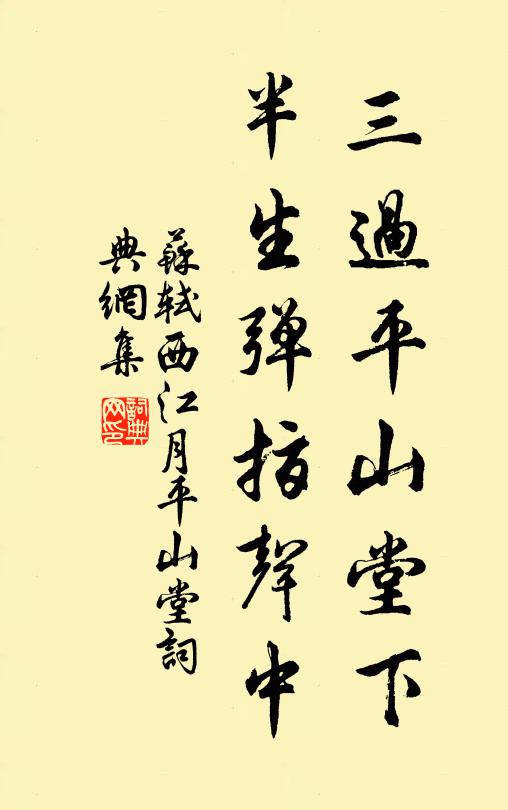 三過平山堂下
半生彈指聲中
蘇軾西江月平山堂詞
典網集
詞典網印